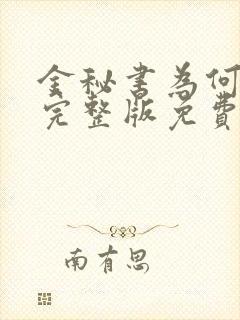 金秘书為何
完整版免費
南有思